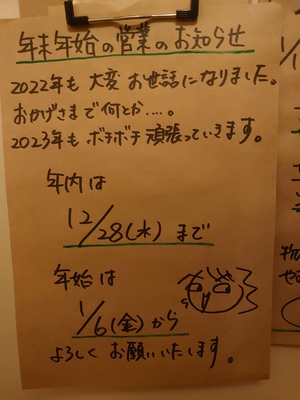 年末年始の営業のお知らせ
2022年も大変お世話になりました。
おかげさまで何とか....。
2023年もボチボチ頑張っていきます。
年内は
12/28(水)まで
年始は
1/6(金)から
よろしくお願いいたします。